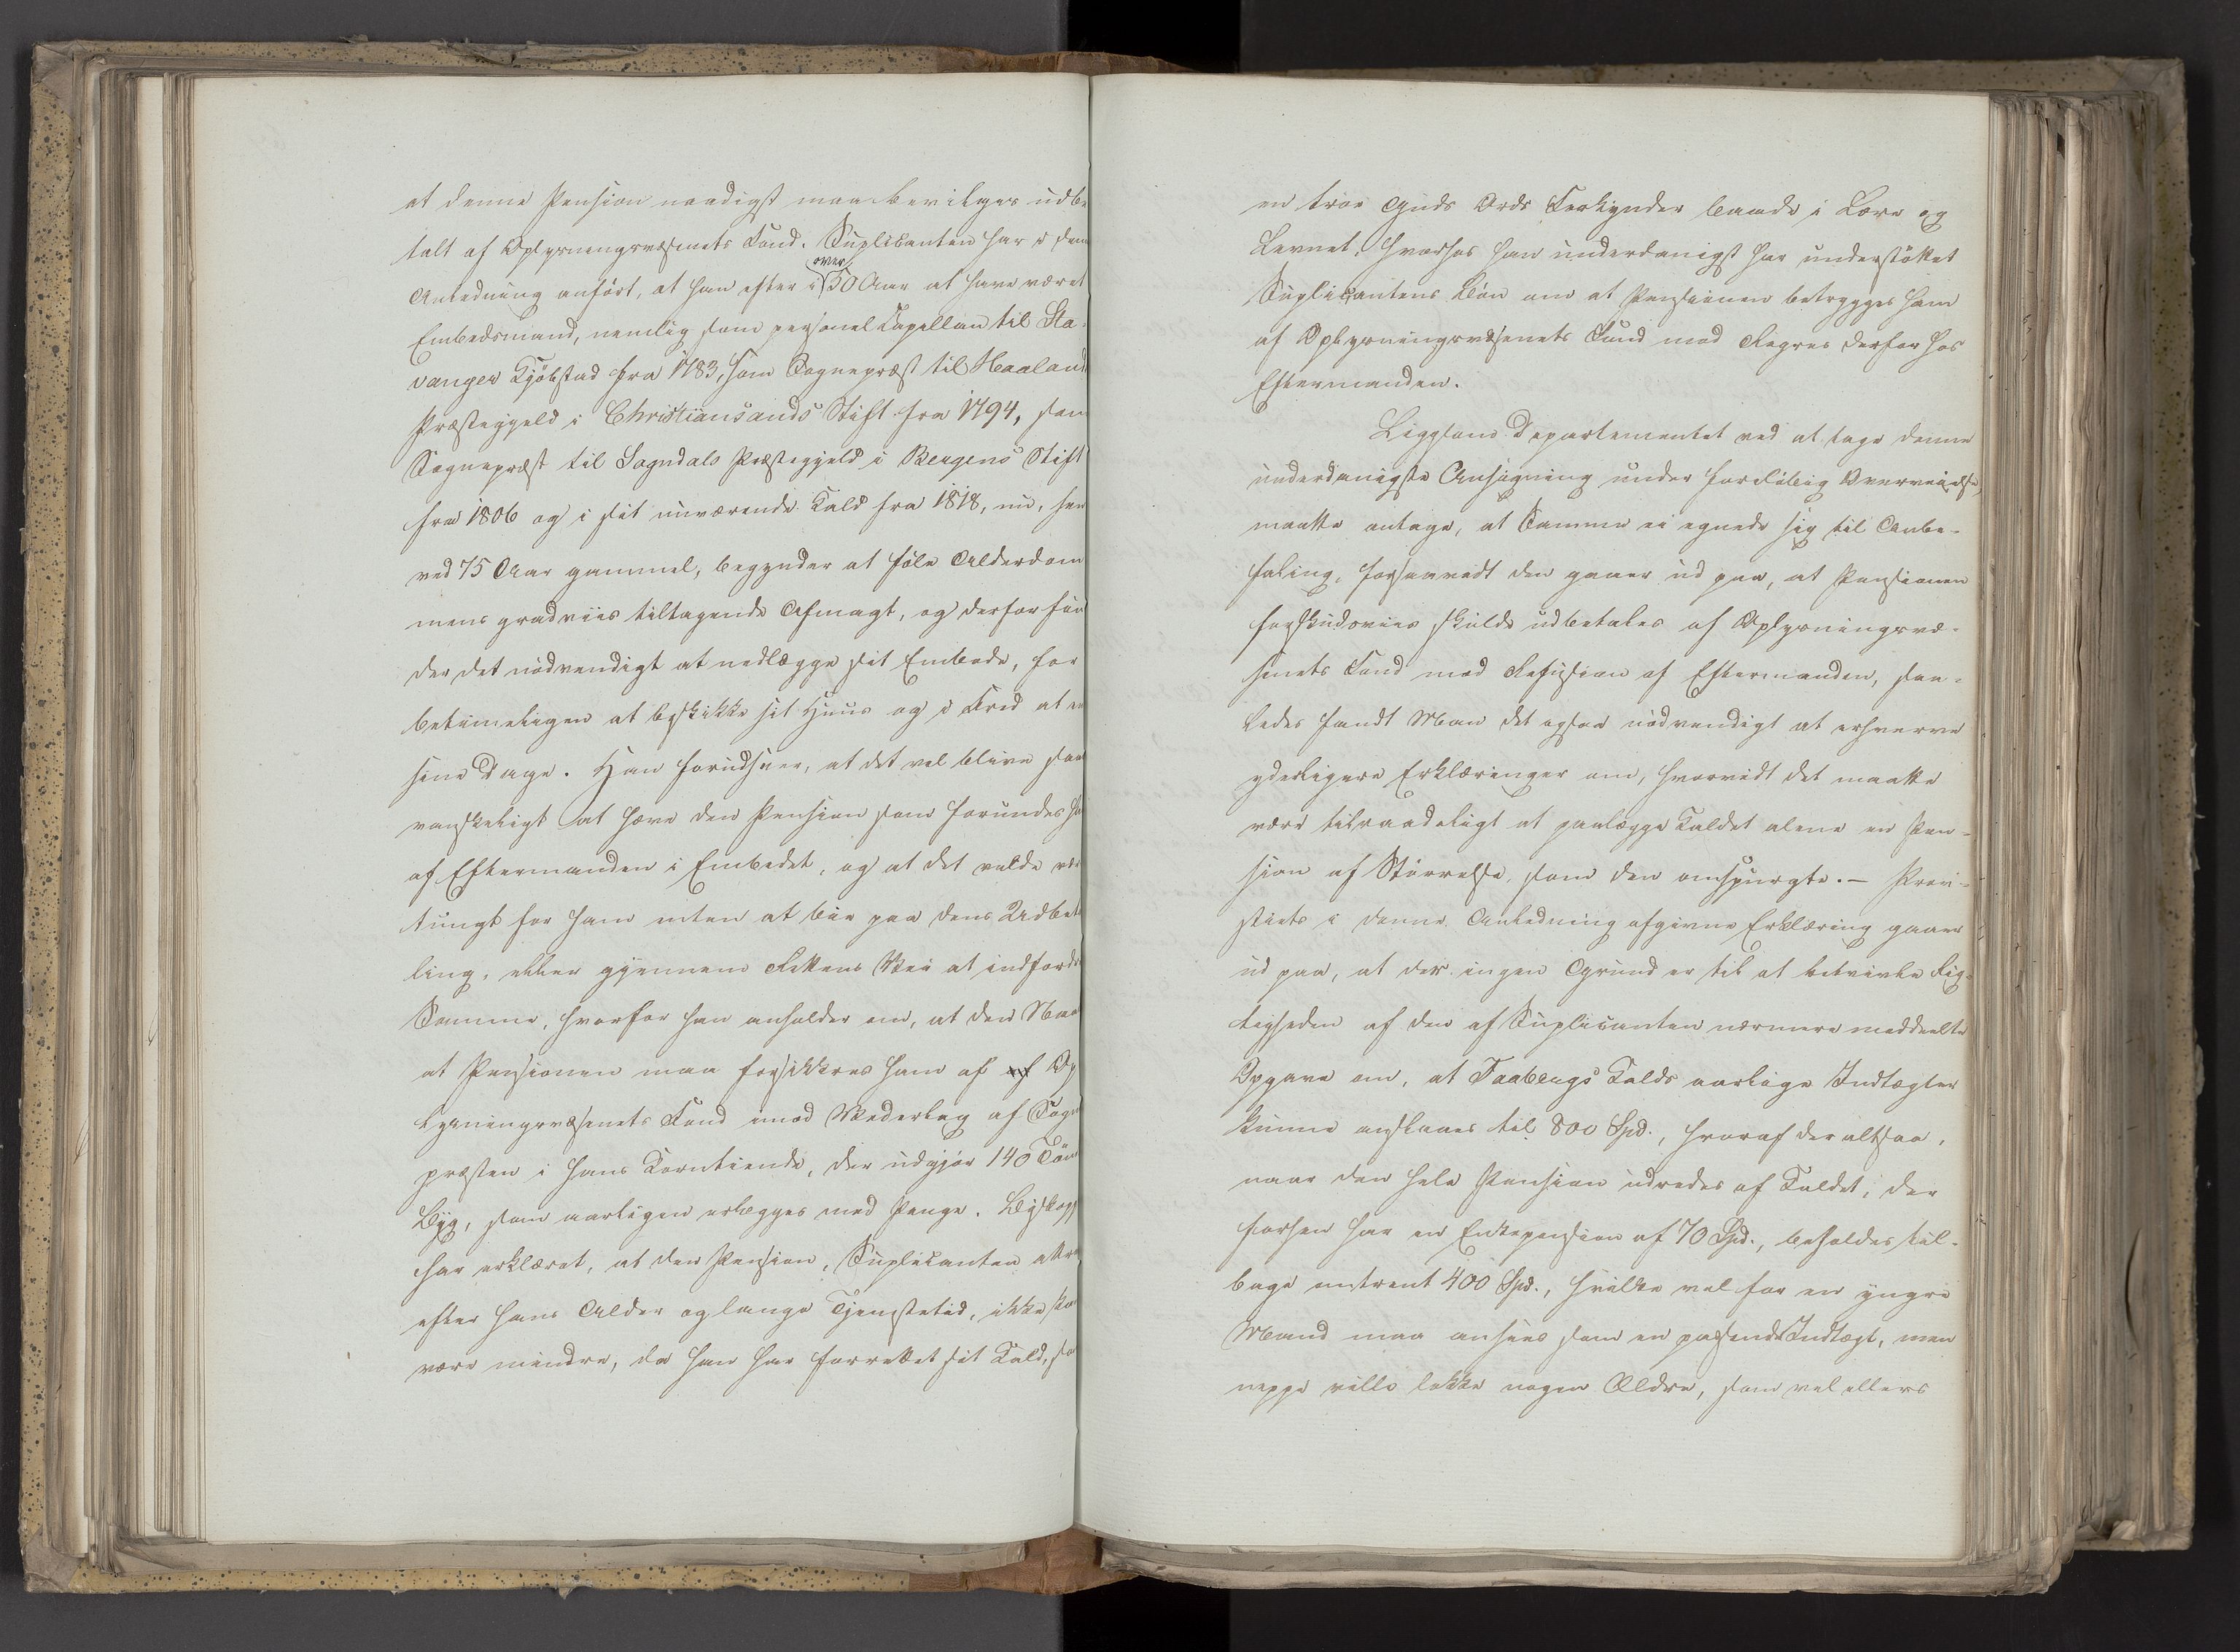 at denne Pension naadigst maa bevilges udbe
talt af Oplysningsvæsenets Fond. Suplicanten har i den
Anledning anført, at han efter i over 50 Aar at have været
Embedsmand, nemlig som personel Capellan til Sta-
vanger Kjöbstad fra 1783, som Sognepræst til Haaland
Præstegjeld i Christiansands Stift fra 1794, som
Sognepræst til Sogndals Præstegjeld i Bergens Stift
fra 1806 og i sit nuværende Kald fra 1818, nu, hen
ved 75 Aar gammel, begynder at föle Alderdom
mens gradviis tiltagende Afmagt, og derfor fin
der det nödvendigt at nedlægge sit Embede, for
betimeligen at beskikke sit Huus og i Fred at en
sine Dage. Han forudseer, at det vel blive saa
vanskeligt at hæve den Pension som forundes ha
af Eftermanden i Embedet, og at det vilde vær
tungt for ham enten at bie paa dens Udbeta
ling, eller gjennem Rettens Vei at indfordre
Samme, hvorfor han anholder om, at den Naa
at Pensionen maa forsikkres ham af af Op
lysningsvæsenets Fond imod Vederlag af Sogne
præsten i hans Korntiende, der udgjør 140 Tön
Byg, som aarligen erlægges med Penge. Biskop
har erklæret, at den Pension, Suplicanten attra
efter hans Alder og lange Tjenestetid, ikke kan
være mindre, da han har forrettet sit Kald, so
en troe Guds Ords Forkynder baade i Lære og
Levnet, hvorhos han underdanigst har understöttet
Suplicantens Bön om at Pensionen betrygges ham
af Oplysningsvæsenets Fond mod Regres derfor hos
Eftermanden.
Ligesom Departementet ved at tage denne
underdanigste Ansögning under foreløbig Overveielse,
maatte antage, at Samme ei egnede sig til Anbe-
faling, forsaavidt den gaaer ud paa, at Pensionen
forskudsviis skulde udbetales af Oplysningsvæ-
senets Fond mod Refusion af Eftermanden, saa-
ledes fandt Man det ogsaa nödvendigt at erhverve
yderligere Erklæringer om, hvorvidt det maatte
være tilraadeligt at paalægge Kaldet alene en Pen-
sion af Störrelse, som den omspurgte. - Provi-
stiets i denne Anledning afgivne Erklæring gaaer
ud paa, at der ingen Grund er til at betvivle Rig-
tigheden af den af Suplicanten nærmere meddeelte
Opgave om, at Faabergs Kalds aarlige Indtægter
kunne anslaaes til 800 Spd., hvoraf der altsaa,
naar den hele Pension udredes af Kaldet, der
forhen har en Enkepension af 70 Spd., beholdes til-
bage omtrent 400 Spd., hvilke vel for en yngre
Mand maa ansees som en passende Indtægt, men
neppe ville lokke nogen Ældre, som vel ellers